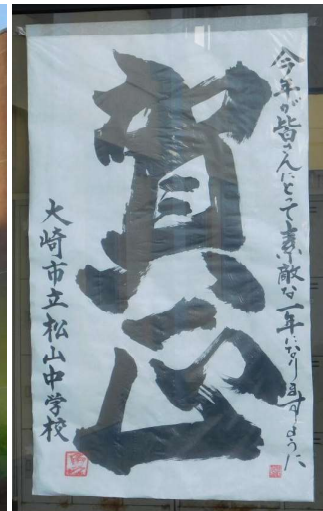 今年が皆さんにとって素敵な一年になりますように
賀正
大崎市立松山中学校